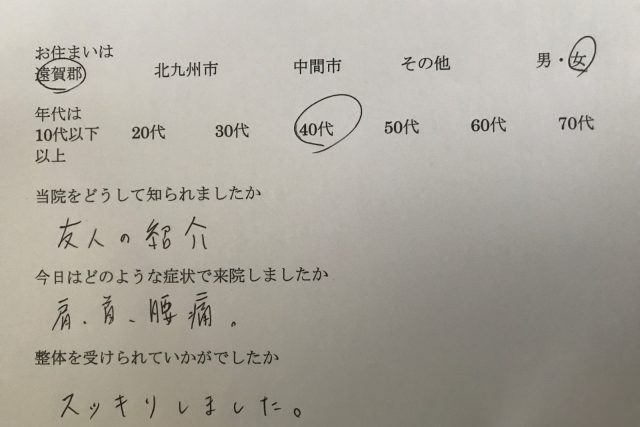 お住まいは
遠賀郡 北九州市 中間市 その他 男・女
年代は
10代以下 20代 30代 40代 50代 60代 70代
以上
当院をどうして知られましたか
友人の紹介
今日はどのような症状で来院しましたか
肩、首、腰痛。
整体を受けられていかがでしたか
スッキリしました。